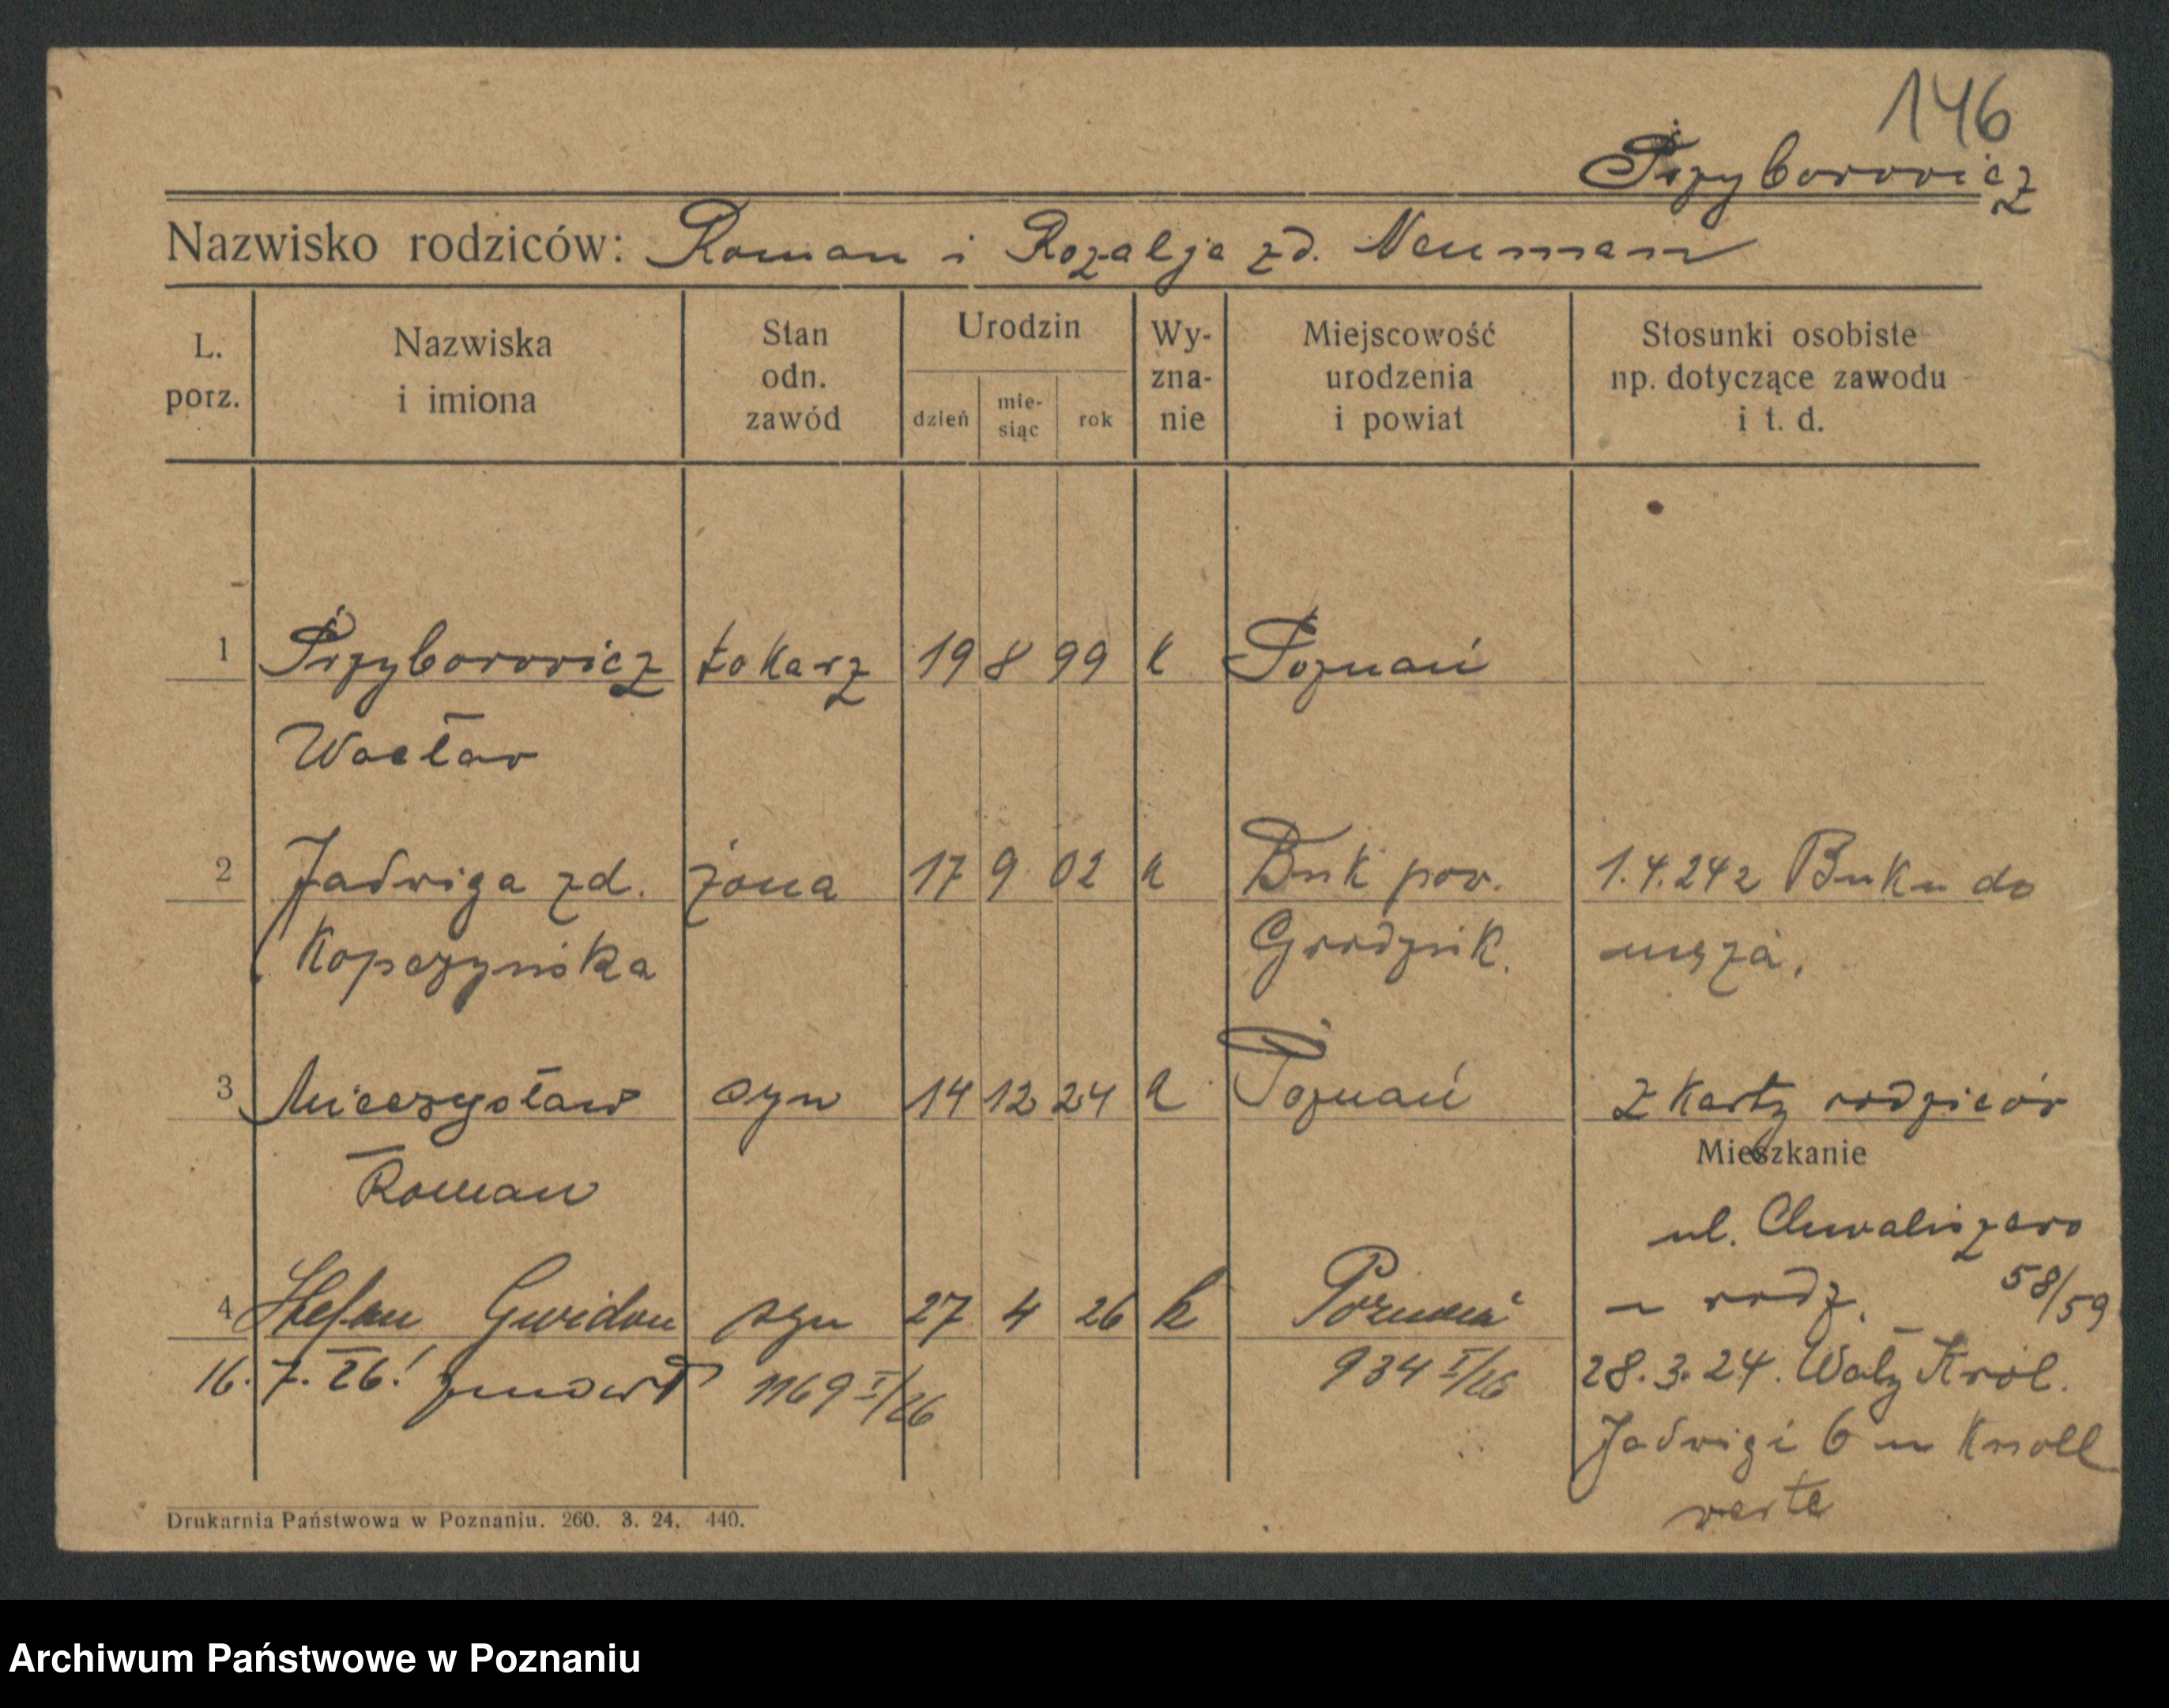 146
Przyborowicz
Nazwisko rodziców: Roman i Rozalja zd. Neuman
L. porz.
Nazwiska i imiona
Stan odn. zawód
Urodzin
dzień
mie-siąc
rok
Wy-zna-nie
Miejscowość urodzenia i powiat
Stosunki osobiste np. dotyczące zawodu i t. d.
1 Przyborowicz tokarz 19 8 99 k Poznań
Wacław
2 Jadwiga zd. żona 17 9 02 k Buk pow. 1.4.24 z Buku do
Kopczyńska Grodzisk. męża.
3 Mieczysław syn 14 12 24 k Poznań Z karty rodziców
Roman
Mieszkanie
ul. Chwaliszewo
58/59
4 Stefan Gwidon syn 27 4 26 k Poznań u rodz.
16. 7. 26! zmarł 1169 I/26 934 I/26 28.3.24. Wały Król.
Jadwigi 6 u Knoll
verte
Drukarnia Państwowa w Poznaniu. 260. 3. 24. 440.
Archiwum Państwowe w Poznaniu